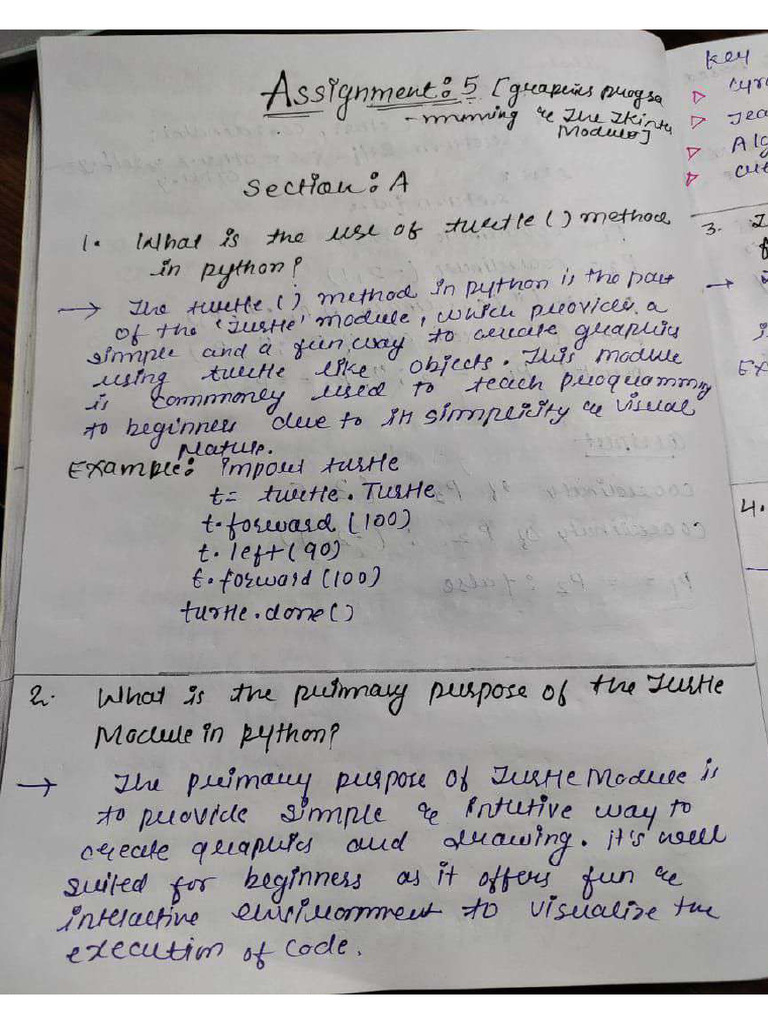 Assignment: 5 [graphics progra
-mming & The Tkinter
Module]
Section: A
1. What is the use of turtle() method
in python?
→ The turtle() method in python is the part
of the 'Turtle' module, which provides a
simple and a fun way to create graphics
using turtle like objects. This module
is commonly used to teach programming
to beginners due to its simplicity & visual
Nature.
Example: import turtle
t= turtle.Turtle
t.forward(100)
t.left(90)
t.forward(100)
turtle.done()
2. What is the primary purpose of the Turtle
Module in python?
→ The primary purpose of Turtle Module is
to provide simple & intutive way to
create graphics and drawing. it's well
suited for beginners as it offers fun &
interactive environment to visualize the
execution of code.
Key
3.
→
EX
4.